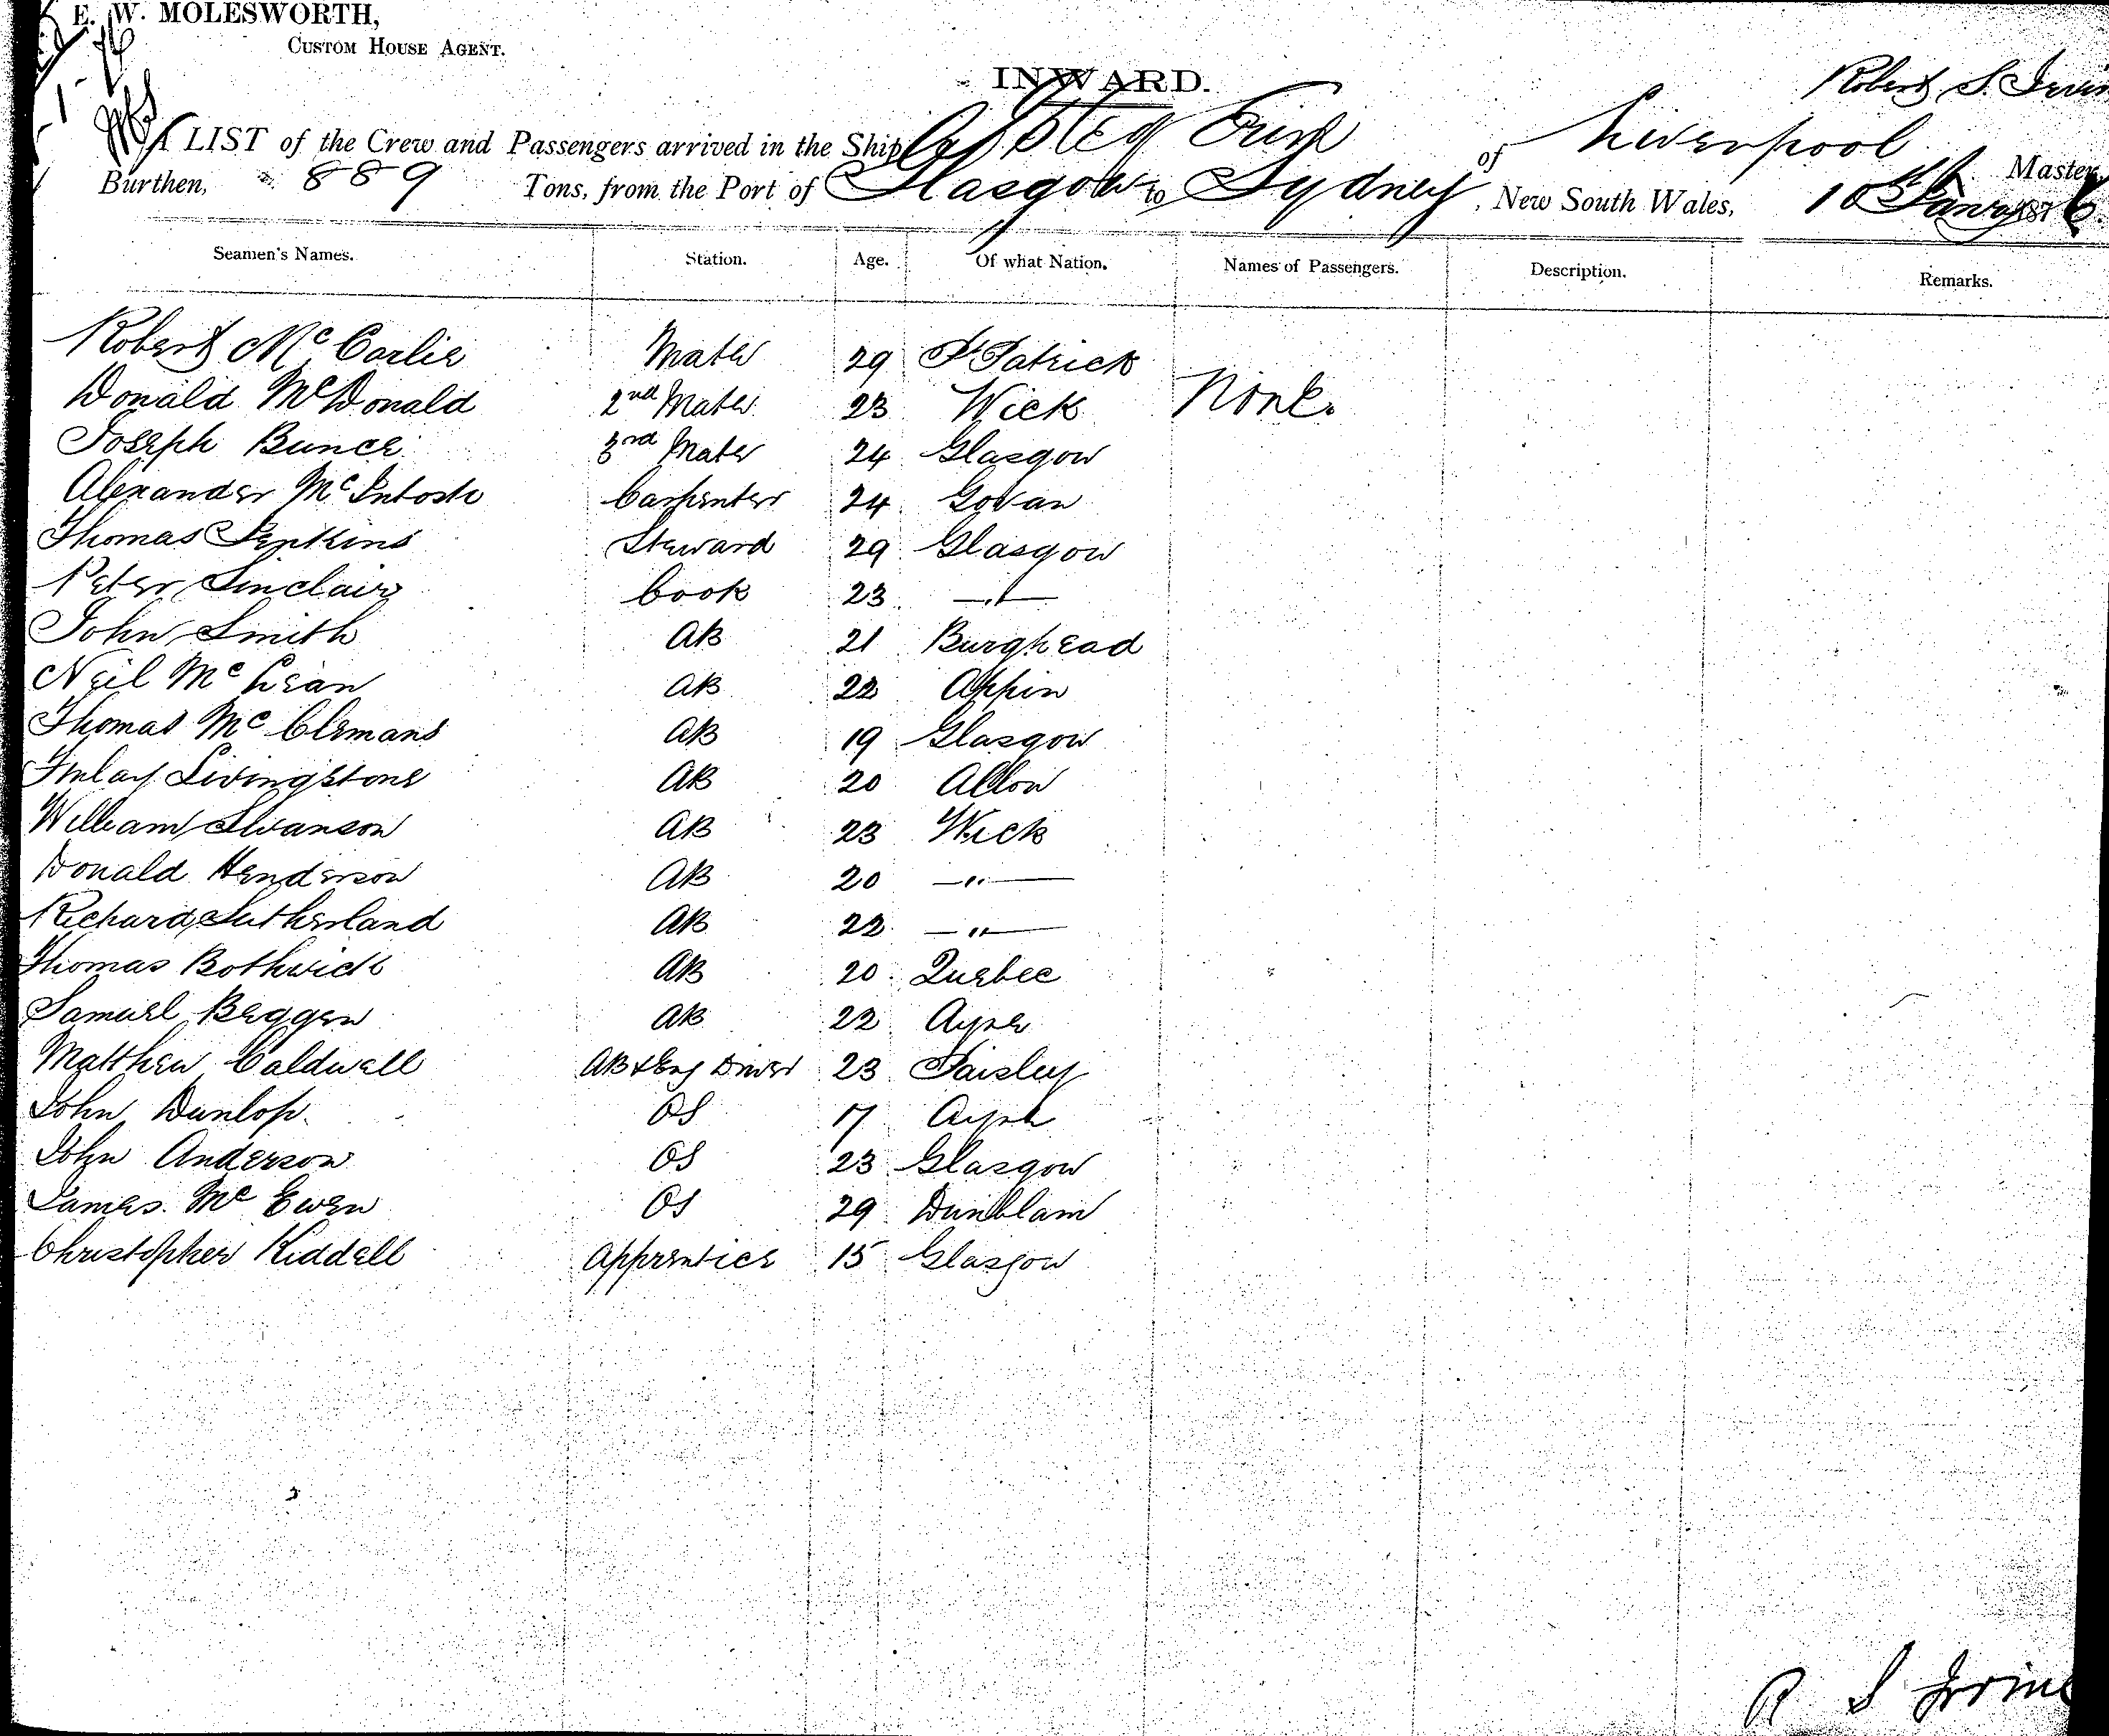 E. W. MOLESWORTH,
CUSTOM HOUSE AGENT.
INWARD.
Robert S. Irvin
A LIST of the Crew and Passengers arrived in the Ship of Liverpool
Master,
Burthen, 889 Tons, from the Port of Glasgow to Sydney, New South Wales, 10th Jany 1876
Seamen's Names. Station. Age. Of what Nation. Names of Passengers. Description. Remarks.
Robert McCorlie Mate 29 St Patrick
Donald McDonald 2nd Mate 23 Wick None.
Joseph Bunce 3rd Mate 24 Glasgow
Alexander McIntosh Carpenter 24 Govan
Thomas Jenkins Steward 29 Glasgow
Peter Sinclair Cook 23 —"—
John Smith AB 21 Burghead
Neil McLean AB 22 Appin
Thomas McClemans AB 19 Glasgow
Finlay Livingstone AB 20 Alloa
William Swanson AB 23 Wick
Donald Henderson AB 20 —"—
Richard Sutherland AB 22 —"—
Thomas Bothwick AB 20 Quebec
Samuel Beggen AB 22 Ayre
Matthew Caldwell AB & Eng Driver 23 Paisley
John Dunlop. OS 17 Ayre
John Anderson OS 23 Glasgow
James McEwen OS 29 Dunblain
Christopher Kiddell Apprentice 15 Glasgow
R S Irvine